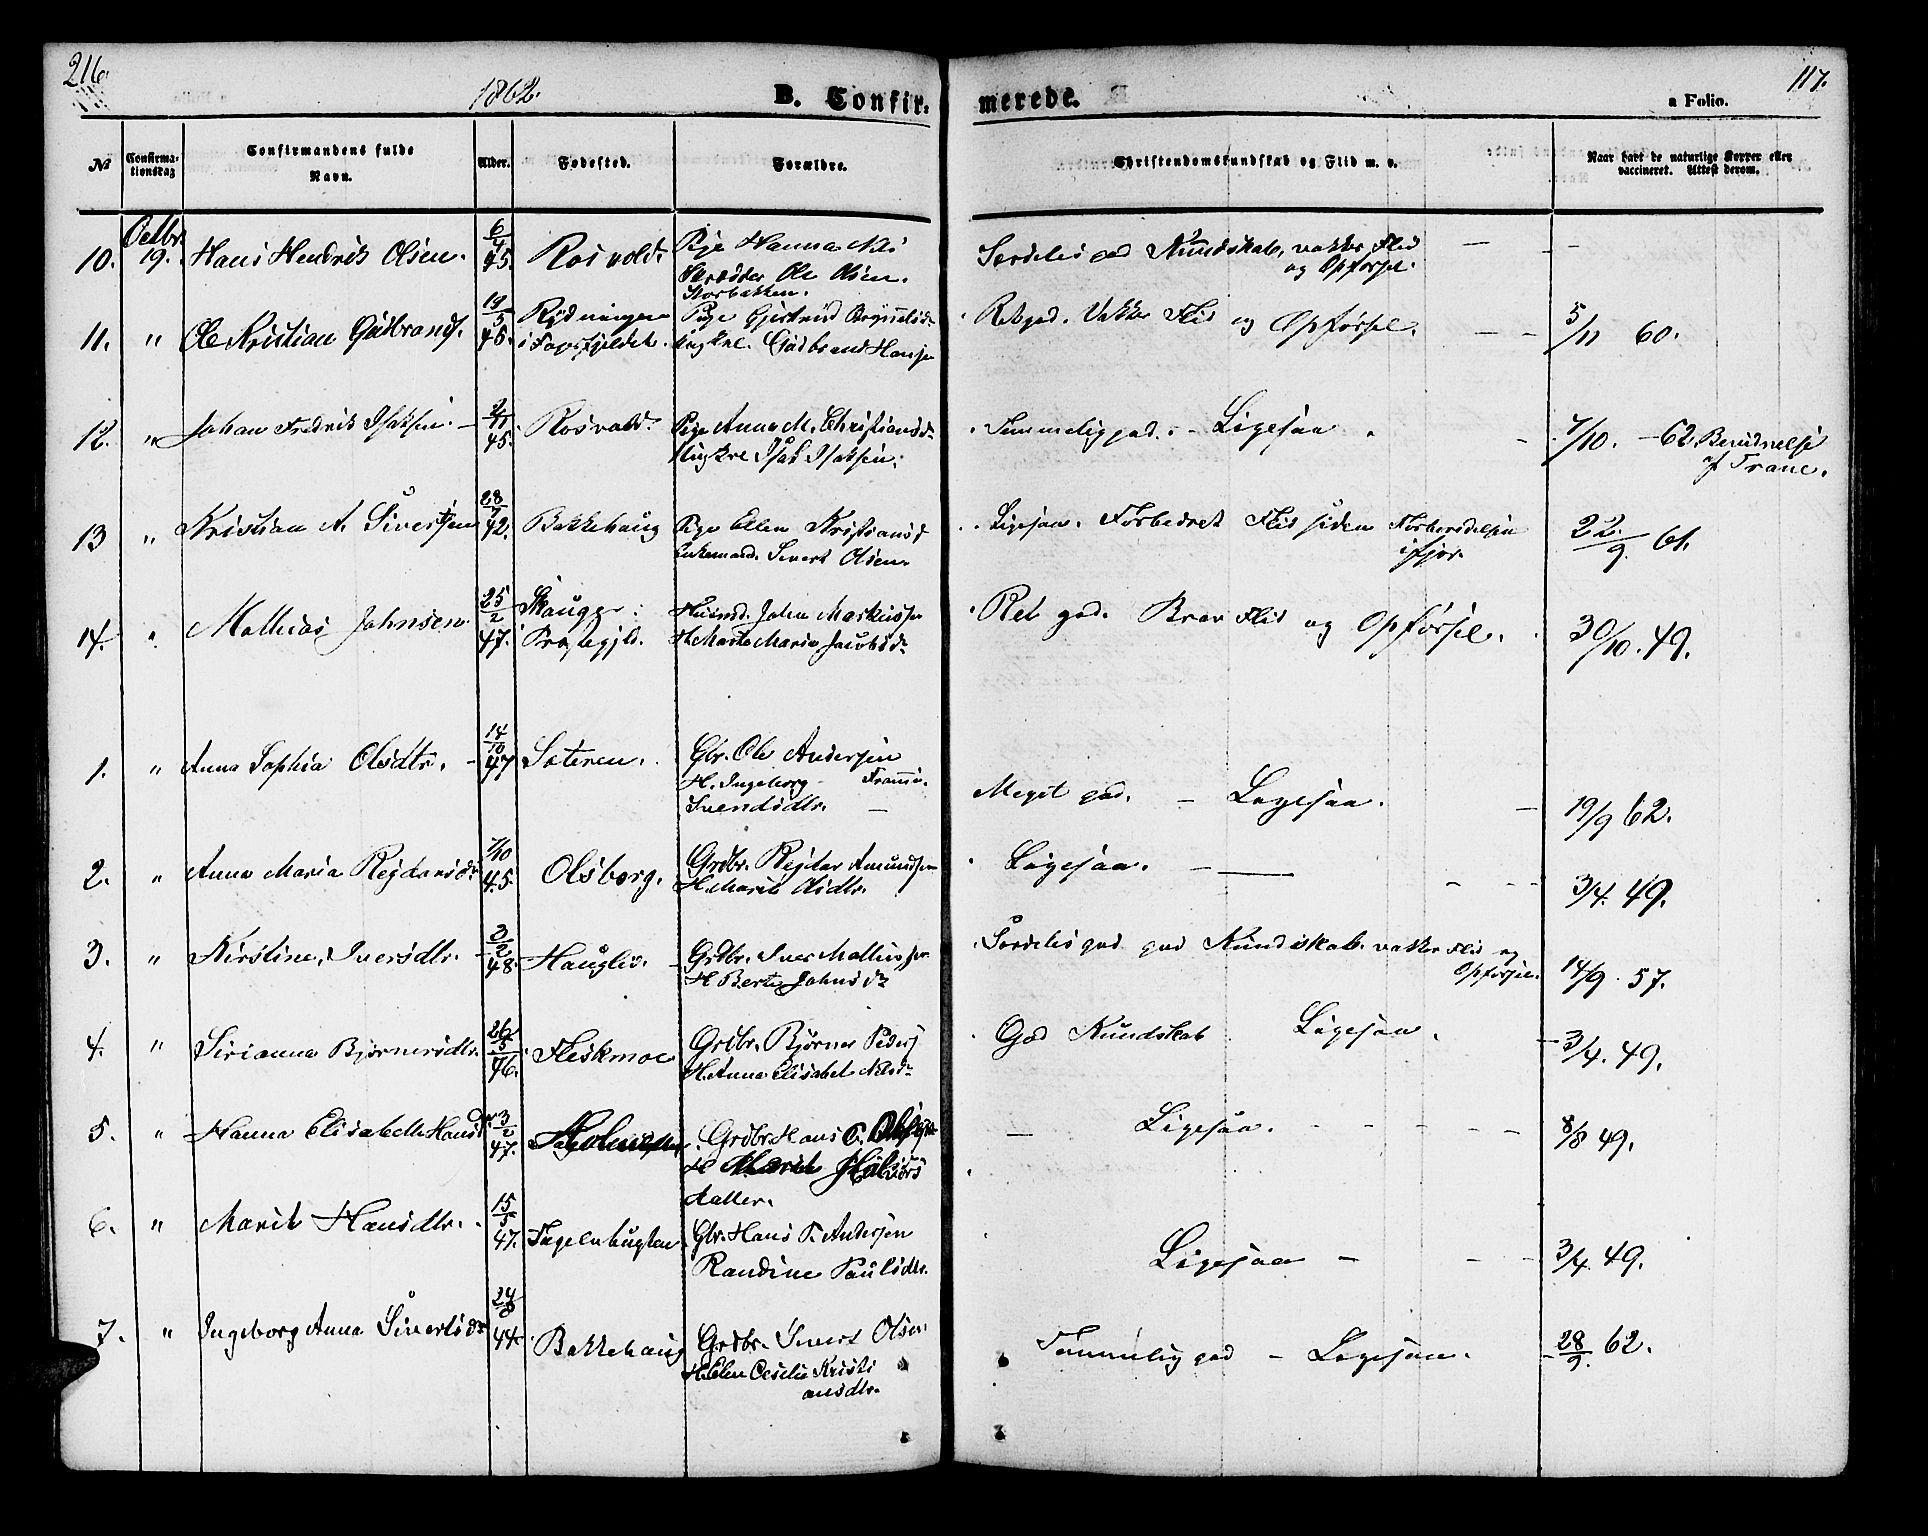 216.
1862.
B. Confir-
merede.
117.
a Folio.
No
Confirma-
tionsdag
Confirmandens fulde
Navn.
Alder.
Fødested.
Forældre.
Christendomskundskab og Flid m. v.
Naar havt de naturlige Kopper eller
vaccineret. Attest derom.
10. Octbr. 19. Hans Hendrik Olsen. 6/4 45. Rosvold. Pige Hanna
Skrædder Ole Olsen.
Storbakken.
Særdeles god Kundskab, vakker Flid
og Opførsel. — —
11. " Ole Kristian Gudbrands. 19/5 45. Rydningen
i Pige Gjertrud
Ungkrl. Gudbrand Hansen
Retgod. Vakker Flid og Opførsel. — — 5/11 60.
12. " Johan Fredrik Isaksen. 2/11 45. Rosvold. Pige Anna M. Christiansdr
Ungkrl Isak Isaksen.
Temmelig god. - Ligesaa - 7/10. - 62. Berudnelse
af Trane.
13 " Kristian A. Sivertsen 28/7 42. Bakkehaug Pige Ellen Kristiansd
Enkemand. Sivert Olsen.
Ligesaa. Forbedret Flid siden
ifjor. 22/9. 61.
14. " Mathias Johnsen. 25/2 47. Skaugge
Præstegjld. Husmd. John Markusen
H. Marte Maria Jacobsdr
Ret god. Brav Flid og Opførsel. 30/10. 49.
1. " Anna Sophia Olsdtr. 14/10 47 Sæteren. Gbr. Ole Andersen
H. Ingeborg
Svendsdtr. —
Meget god. — Ligesaa. — 19/9 62.
2. " Anna Maria Rejdarsdr 7/10 45. Olsborg. Grdbr. Rejdar Amundsen
H. Marit Olsdtr.
Ligesaa. — — - - - 3/4. 49.
3. " Kirstine Iversdtr. 3/2 48. Hauglid. Grdbr. Iver Mathissen
H Berte Johnsdr
Særdeles god god Kundskab. vakker Flid og
Opførsel. 14/9 57.
4. " Sirianna Bjørnersdtr. 26/5 46. Fleskmoe Grdbr. Bjørner Peders
H. Anna Elisabet Nilsdr
God Kundskab Ligesaa. — 3/4. 49.
5. " Hanna Elisabeth Hansdr 3/2 47. Grdbr Hans
H Marit Halvors
datter.
— Ligesaa. - - - - - 8/8 49.
6. " Marit Hansdtr. 15/5 47. Gbr. Hans P. Andersen
Randine Paulsdtr.
Ligesaa — — — 3/4. 49.
7. " Ingeborg Anna Sivertsdr 24/8 44. Bakkehaug Grdbr. Sivert Olsen
H. Elen Cesilie Kristi
ansdtr.
Temmelig god — Ligesaa. — 28/9. 62.